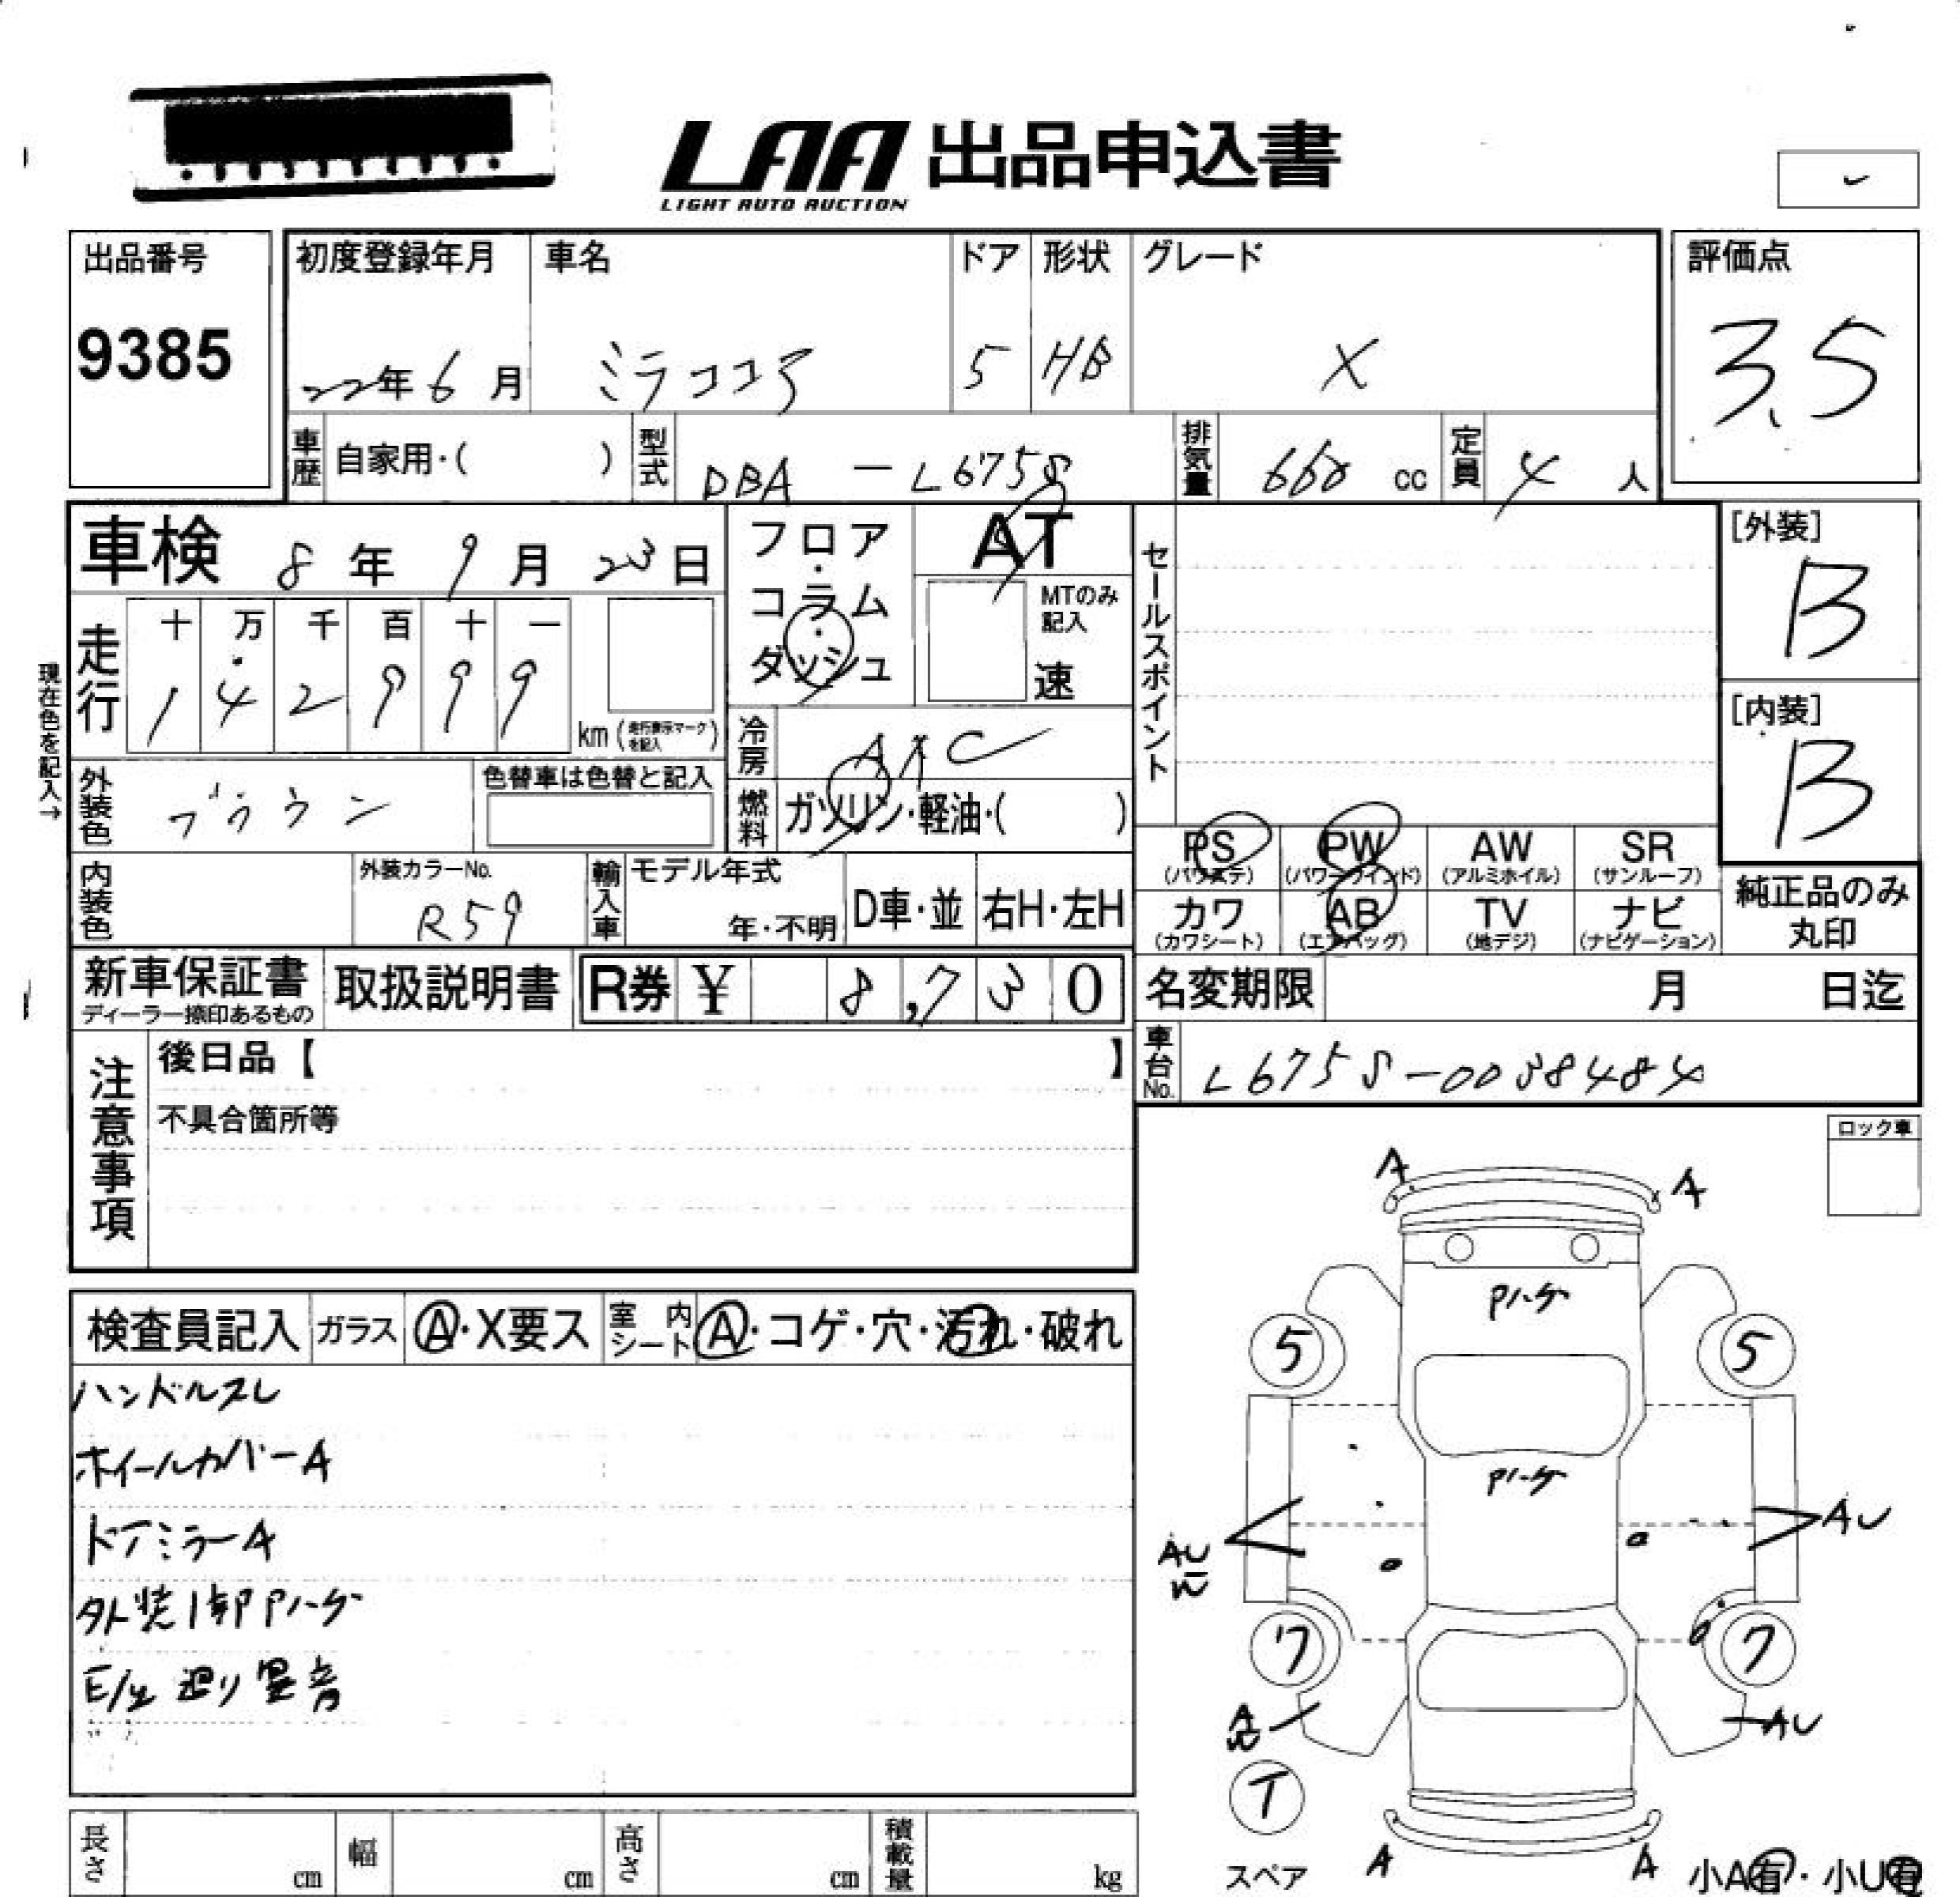 LAA 出品申込書
LIGHT AUTO AUCTION
出品番号
9385
初度登録年月 車名 ドア 形状 グレード
22年6月 ミラココア 5 HB X
評価点
3.5
車歴 自家用・( ) 型式 DBA-L675S 排気量 660 cc 定員 4 人
車検 8年9月23日
フロア・コラム・ダッシュ
AT
MTのみ記入
速
セールスポイント
[外装]
B
[内装]
B
現在色を記入→
走行 十 万 千 百 十 一
1 4 2 9 9 9
km (走行表示マークを記入)
冷房 AAC
外装色 ブラウン
色替車は色替と記入
燃料 ガソリン・軽油・( )
PS (パワステ) PW (パワーウインド) AW (アルミホイル) SR (サンルーフ)
カワ (カワシート) AB (エアバッグ) TV (地デジ) ナビ (ナビゲーション)
純正品のみ丸印
内装色
外装カラーNo.
R59
輸入車 モデル年式
年・不明
D車・並
右H・左H
新車保証書
ディーラー捺印あるもの
取扱説明書
R券 ¥ 8,730
名変期限 月 日迄
車台No. L675S-0038484
注意事項
後日品【 】
不具合箇所等
ロック車
検査員記入 ガラス A・X要ス 室内シート A・コゲ・穴・汚れ・破れ
ハンドルスレ
ホイールカバーA
ドアミラーA
外装1部Pハゲ
E/g廻り異音
A A
Pハゲ
5 5
Pハゲ
AU
AU
7 7
AU
T
スペア
A A
小A有・小U有
長さ cm 幅 cm 高さ cm 積載量 kg